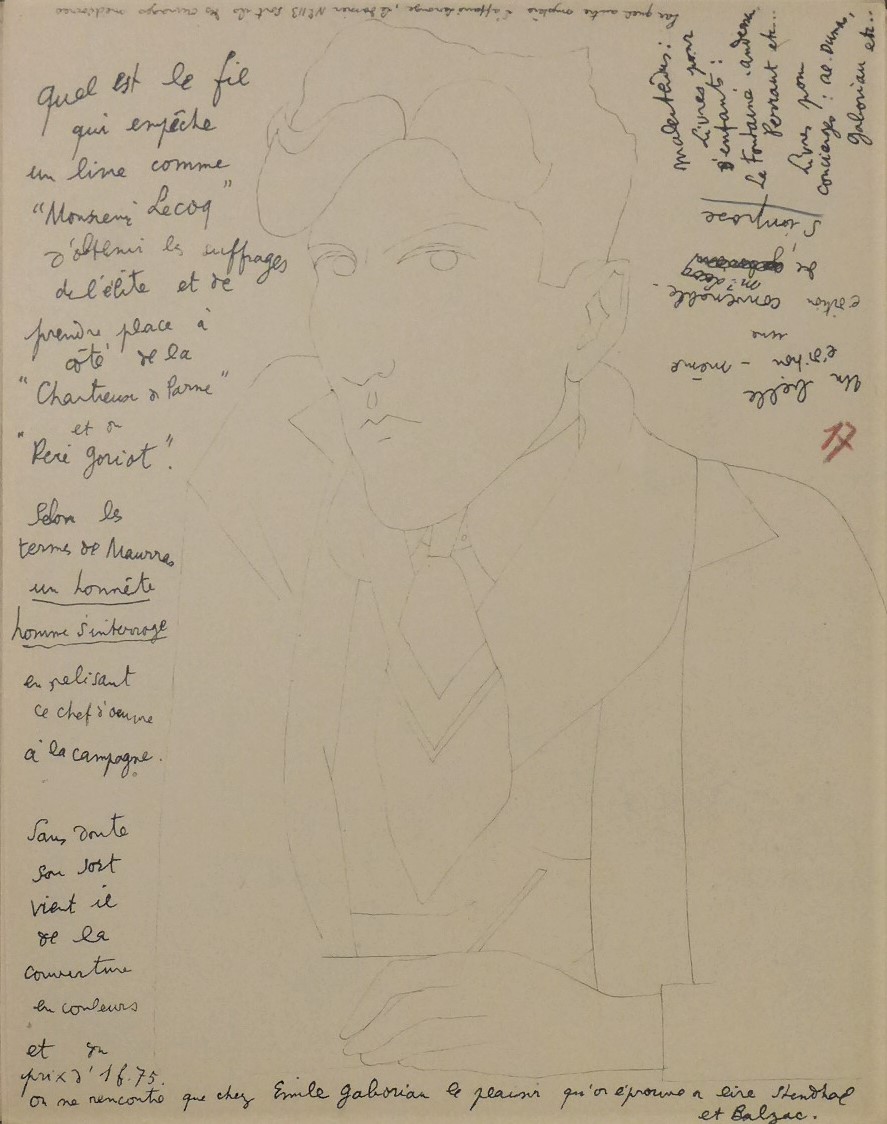 Quel est le fil
qui empêche
un livre comme
"Monsieur Lecoq"
d'obtenir les suffrages
de l'élite et de
prendre place à
côté de la
"Chartreuse de Parme"
et du
"Père Goriot".
Selon les
termes de Maurras
un honnête
homme s'interroge
en relisant
ce chef d'œuvre
à la campagne.
Sans doute
son sort
vient il
de la
couverture
en couleurs
et du
prix d' 1f.75.
On ne rencontre que chez Emile Gaboriau le plaisir qu'on éprouve a lire Stendhal
et Balzac.
17
Un belle
édition - même
une
édition convenable
de
Mr Lecoq
s'impose
malentendus:
Livres pour
d'enfants:
La Fontaine. Andersen
Perraut etc...
Livres pour
concierges: Al. Dumas,
Gaboriau etc..
Par quel autre
, le dernier N° 113 sont ils des ouvrages